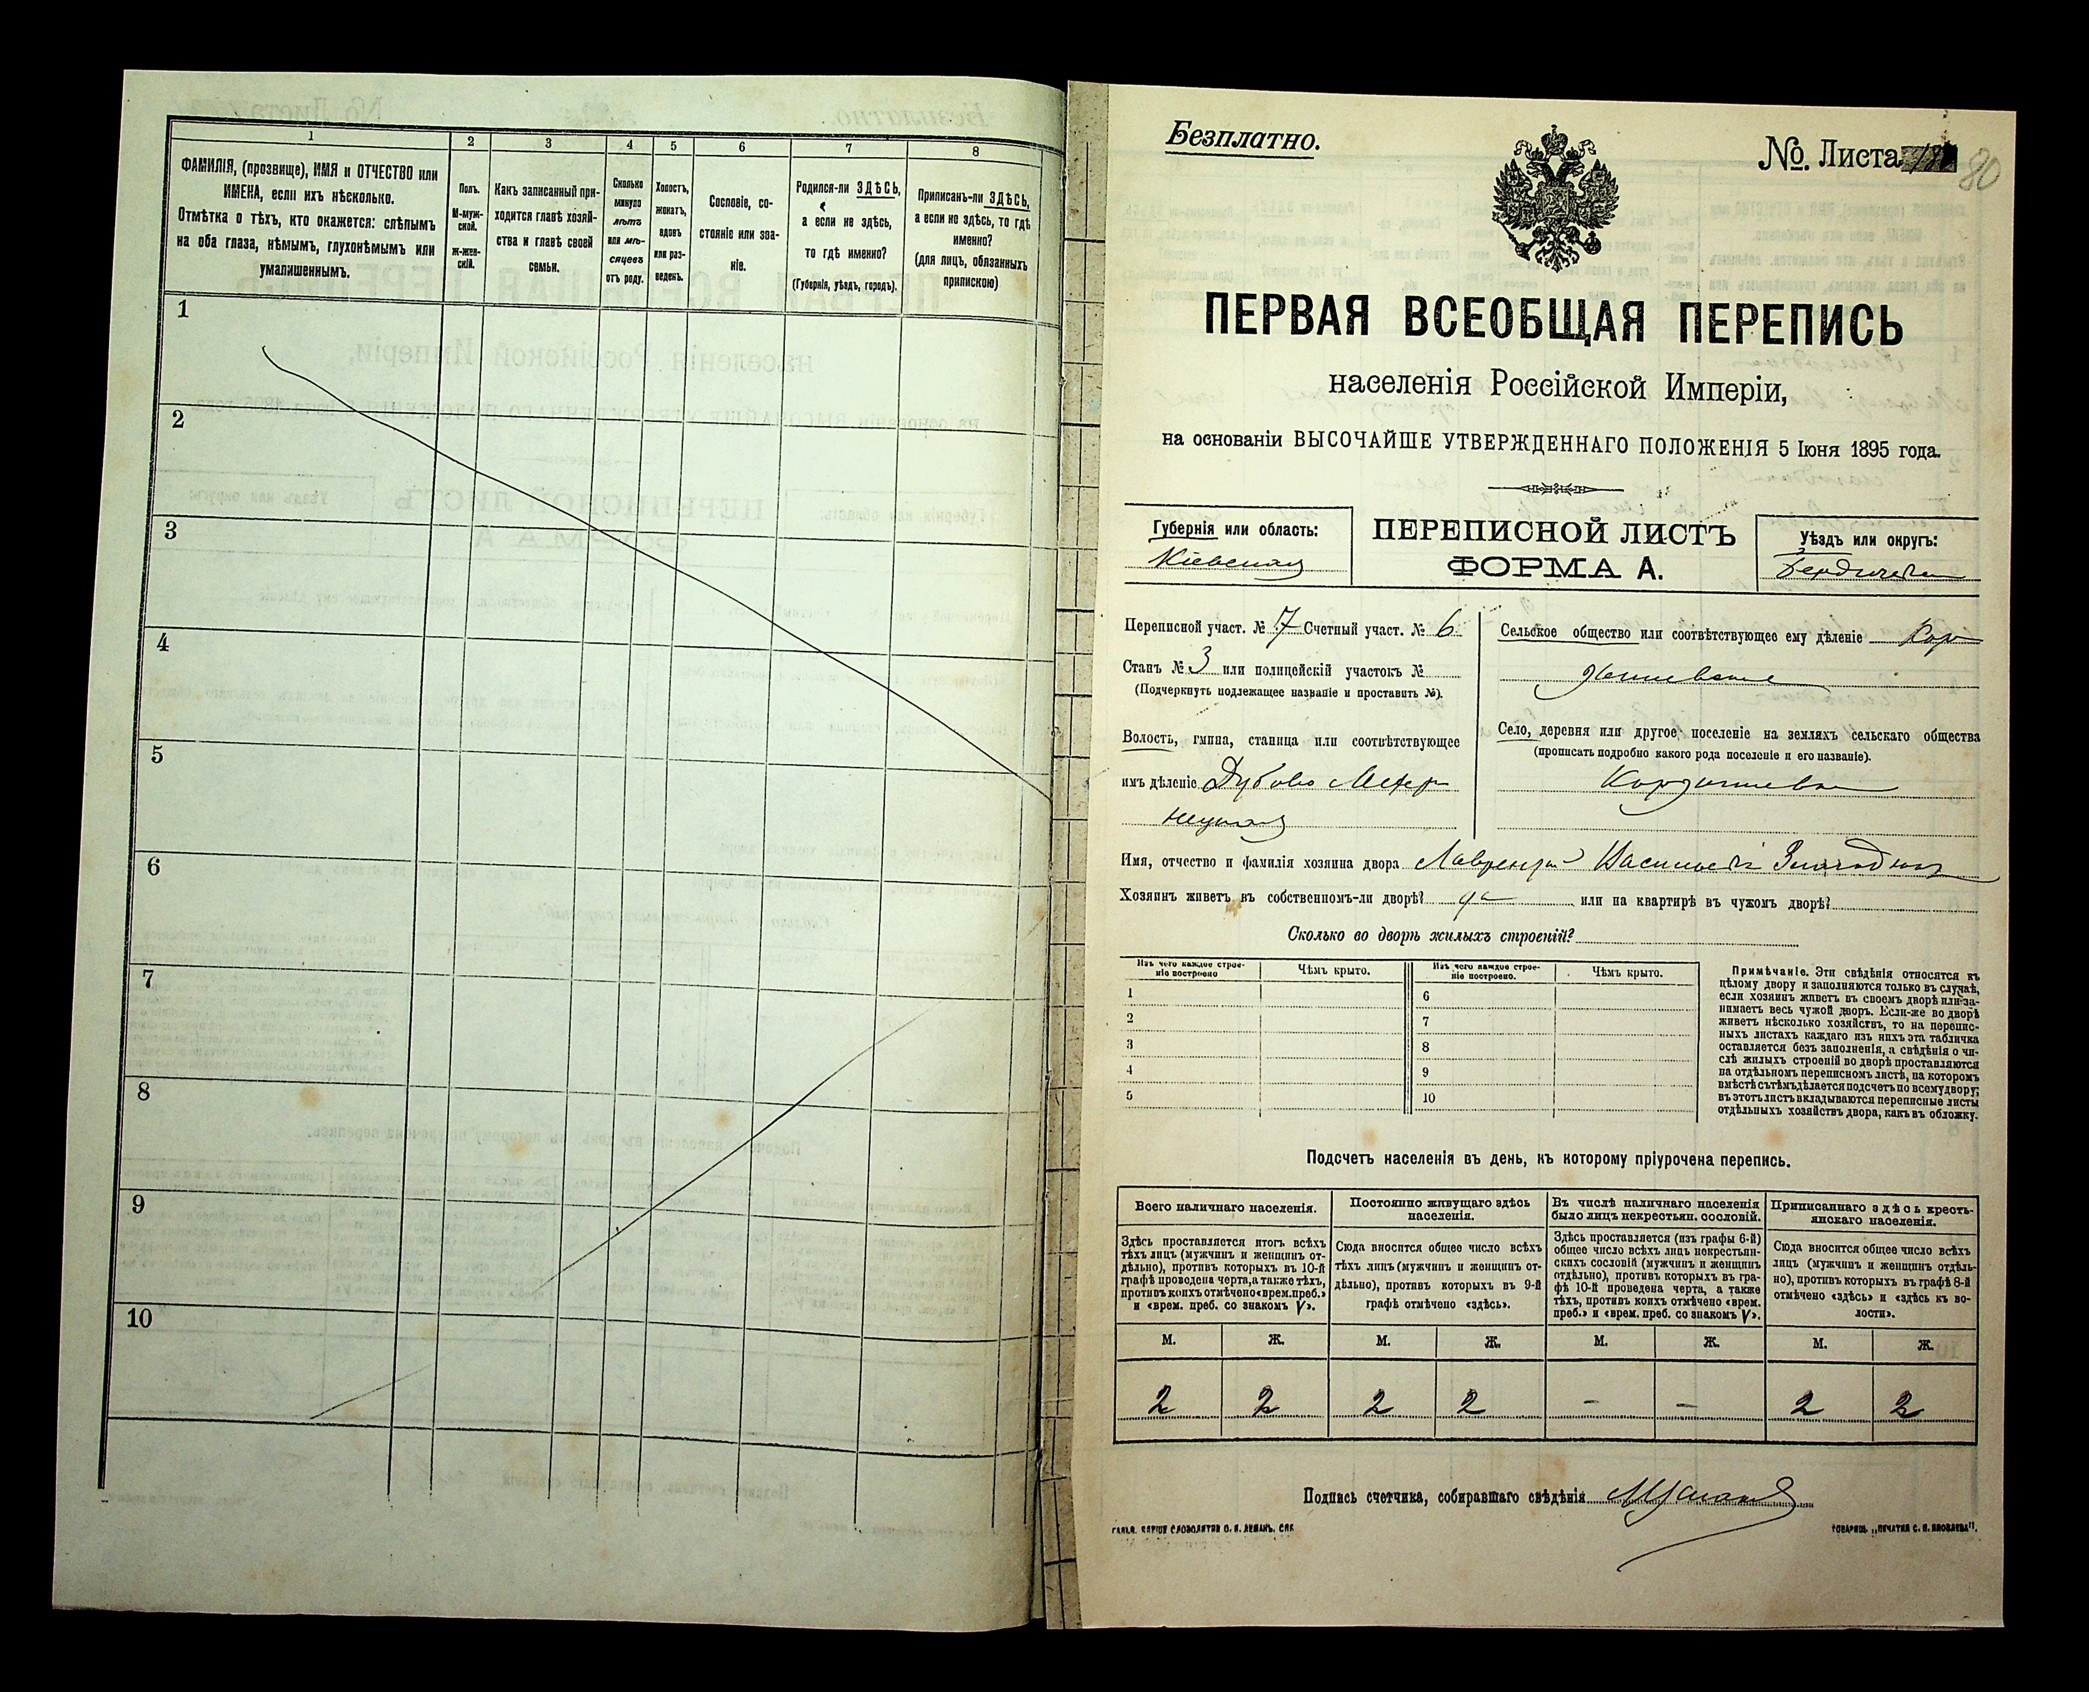 1 2 3 4 5 6 7 8
ФАМИЛІЯ, (прозвище), ИМЯ и ОТЧЕСТВО или
ИМЕНА, если ихъ нѣсколько.
Отмѣтка о тѣхъ, кто окажется: слѣпымъ
на оба глаза, нѣмымъ, глухонѣмымъ или
умалишеннымъ.
Полъ.
М-муж-
ской.
Ж-жен-
скій.
Какъ записанный при-
ходится главѣ хозяй-
ства и главѣ своей
семьи.
Сколько
минуло
лѣтъ
или мѣ-
сяцевъ
отъ роду.
Холостъ,
женатъ,
вдовъ
или раз-
веденъ.
Сословіе, со-
стояніе или зва-
ніе.
Родился-ли ЗДѢСЬ,
а если не здѣсь,
то гдѣ именно?
(Губернія, уѣздъ, городъ).
Приписанъ-ли ЗДѢСЬ,
а если не здѣсь, то гдѣ
именно?
(для лицъ, обязанныхъ
припискою)
1
2
3
4
5
6
7
8
9
10
Безплатно.
№. Листа 80
ПЕРВАЯ ВСЕОБЩАЯ ПЕРЕПИСЬ
населенія Россійской Имперіи,
на основаніи ВЫСОЧАЙШЕ УТВЕРЖДЕННАГО ПОЛОЖЕНІЯ 5 Іюня 1895 года.
Губернія или область:
Кіевская
ПЕРЕПИСНОЙ ЛИСТЪ
ФОРМА А.
Уѣздъ или округъ:
Переписной участ. № 7 Счетный участ. № 6
Станъ № 3 или полицейскій участокъ №
(Подчеркнуть подлежащее названіе и проставить №).
Волость, гмина, станица или соотвѣтствующее
имъ дѣленіе Дубово
Сельское общество или соотвѣтствующее ему дѣленіе
Село, деревня или другое поселеніе на земляхъ сельскаго общества
(прописать подробно какого рода поселеніе и его названіе).
Имя, отчество и фамилія хозяина двора
Хозяинъ живетъ въ собственномъ-ли дворѣ? да или на квартирѣ въ чужомъ дворѣ?
Сколько во дворѣ жилыхъ строеній?
Изъ чего каждое строе-
ніе построено
Чѣмъ крыто.
Изъ чего каждое строе-
ніе построено.
Чѣмъ крыто.
1 6
2 7
3 8
4 9
5 10
Примѣчаніе. Эти свѣдѣнія относятся къ
цѣлому двору и заполняются только въ случаѣ,
если хозяинъ живетъ въ своемъ дворѣ или за-
нимаетъ весь чужой дворъ. Если-же во дворѣ
живетъ нѣсколько хозяйствъ, то на перепис-
ныхъ листахъ каждаго изъ нихъ эта табличка
оставляется безъ заполненія, а свѣдѣнія о чи-
слѣ жилыхъ строеній во дворѣ проставляются
на отдѣльномъ переписномъ листѣ, на которомъ
вмѣстѣ съ тѣмъ дѣлается подсчетъ по всему двору;
въ этотъ листъ вкладываются переписные листы
отдѣльныхъ хозяйствъ двора, какъ въ обложку.
Подсчетъ населенія въ день, къ которому пріурочена перепись.
Всего наличнаго населенія.
Здѣсь проставляется итогъ всѣхъ
тѣхъ лицъ (мужчинъ и женщинъ от-
дѣльно), противъ которыхъ въ 10-й
графѣ проведена черта, а также тѣхъ,
противъ коихъ отмѣчено «врем. преб.»
и «врем. преб. со знакомъ V».
Постоянно живущаго здѣсь
населенія.
Сюда вносится общее число всѣхъ
тѣхъ лицъ (мужчинъ и женщинъ от-
дѣльно), противъ которыхъ въ 9-й
графѣ отмѣчено «здѣсь».
Въ числѣ наличнаго населенія
было лицъ некрестьян. сословій.
Здѣсь проставляется (изъ графы 6-й)
общее число всѣхъ лицъ некрестьян-
скихъ сословій (мужчинъ и женщинъ
отдѣльно), противъ которыхъ въ гра-
фѣ 10-й проведена черта, а также
тѣхъ, противъ коихъ отмѣчено «врем.
преб.» и «врем. преб. со знакомъ V».
Приписаннаго здѣсь кресть-
янскаго населенія.
Сюда вносится общее число всѣхъ
лицъ (мужчинъ и женщинъ отдѣль-
но), противъ которыхъ въ графѣ 8-й
отмѣчено «здѣсь» и «здѣсь къ во-
лости».
М. Ж. М. Ж. М. Ж. М. Ж.
2 2 2 2 - - 2 2
Подпись счетчика, собиравшаго свѣдѣнія